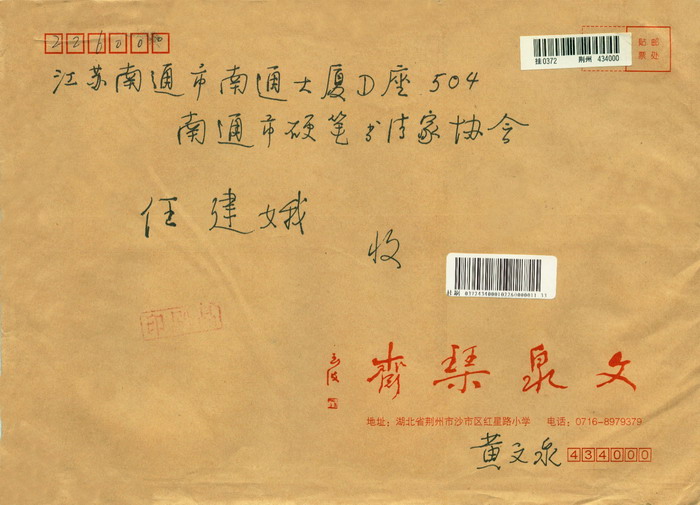 226000
挂0372 荆州 434000
贴邮
票处
江苏南通市南通大厦D座504
南通市硬笔书法家协会
任建娥
收
印刷品
文泉琹斋
地址：湖北省荆州市沙市区红星路小学 电话：0716-8979379
黄文泉 434000